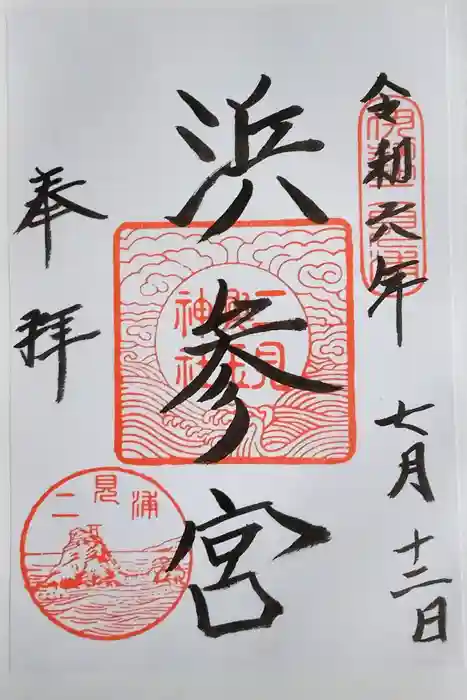 令和六年七月十二日
伊勢二見浦
浜参宮
二見興玉神社
奉拝
二見浦